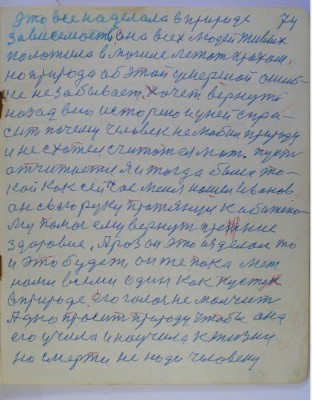 74
Это все наделала в природе
зависемость она всех людей живых
положила в могиле лежат прахом,
но природа об этой умершой ошиб
ке не забывает, хочет вернуть
назад всю историю и у ней спра-
сит почему человек не любил природу
и не схотел считотся мат. пусть
отчитается я и тогда была та-
кой как сейчас меня нашел Иванов
он свою руку протянул к обижено-
му помог ему вернут прежние
здоровие, А раз он это изделал то
и это будет, он же пока меж
нами всеми один как пустук
в природе, его голос не молчит
Адно просит природу чтобы она
его учила и научила к жизни
но смерти не надо человеку